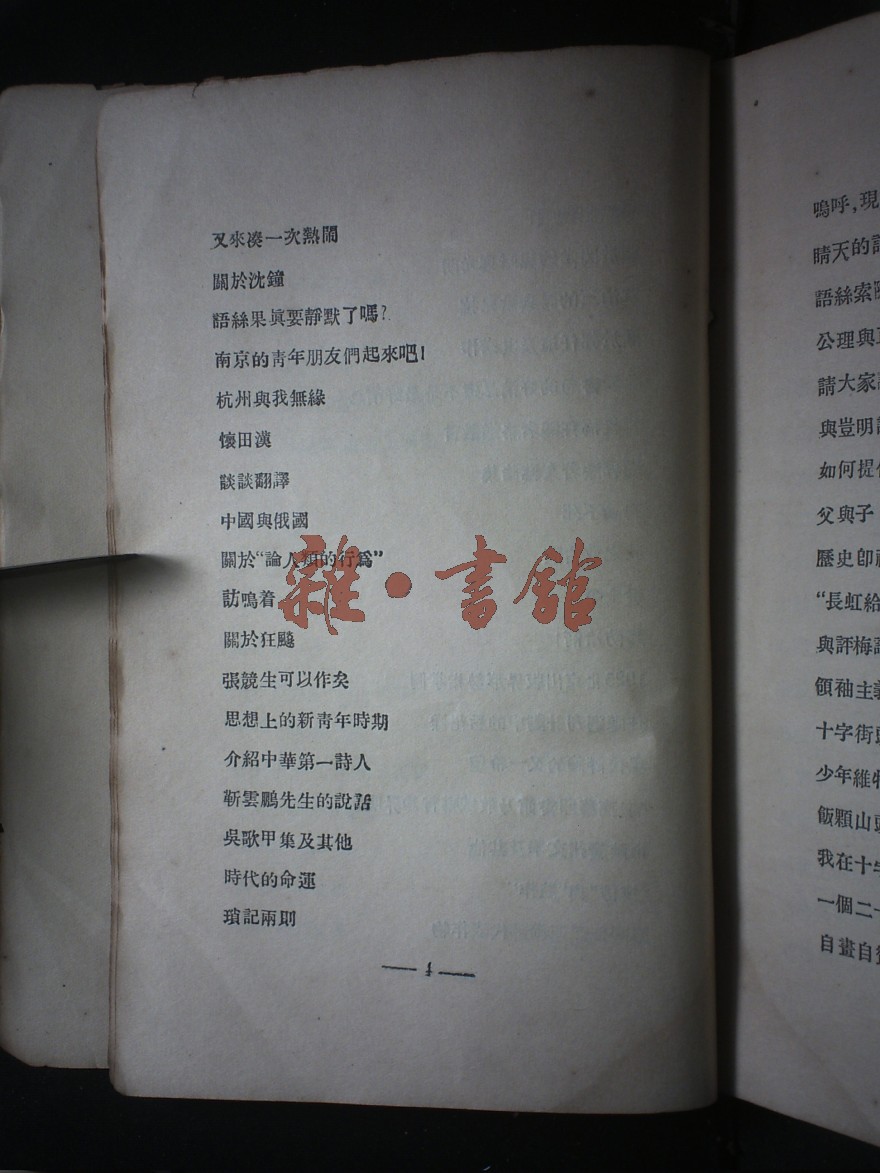 又來湊一次熱鬧
關於沈鐘
語絲果眞要靜默了嗎?
南京的靑年朋友們起來吧!
杭州與我無緣
懷田漢
談談翻譯
中國與俄國
關於“論人類的行爲”
訪鳴着
關於狂飈
張競生可以作矣
思想上的新靑年時期
介紹中華第一詩人
靳雲鵬先生的說話
吳歌甲集及其他
時代的命運
瑣記兩則
— 4 —
雜·書館
嗚呼,現
晴天的
語絲索
公理與
請大家
與豈明
如何提
父與子
歷史卽
“長虹給
與評梅
領袖主義
十字街頭
少年維
飯顆山頭
我在十字
一個二十
自畫自